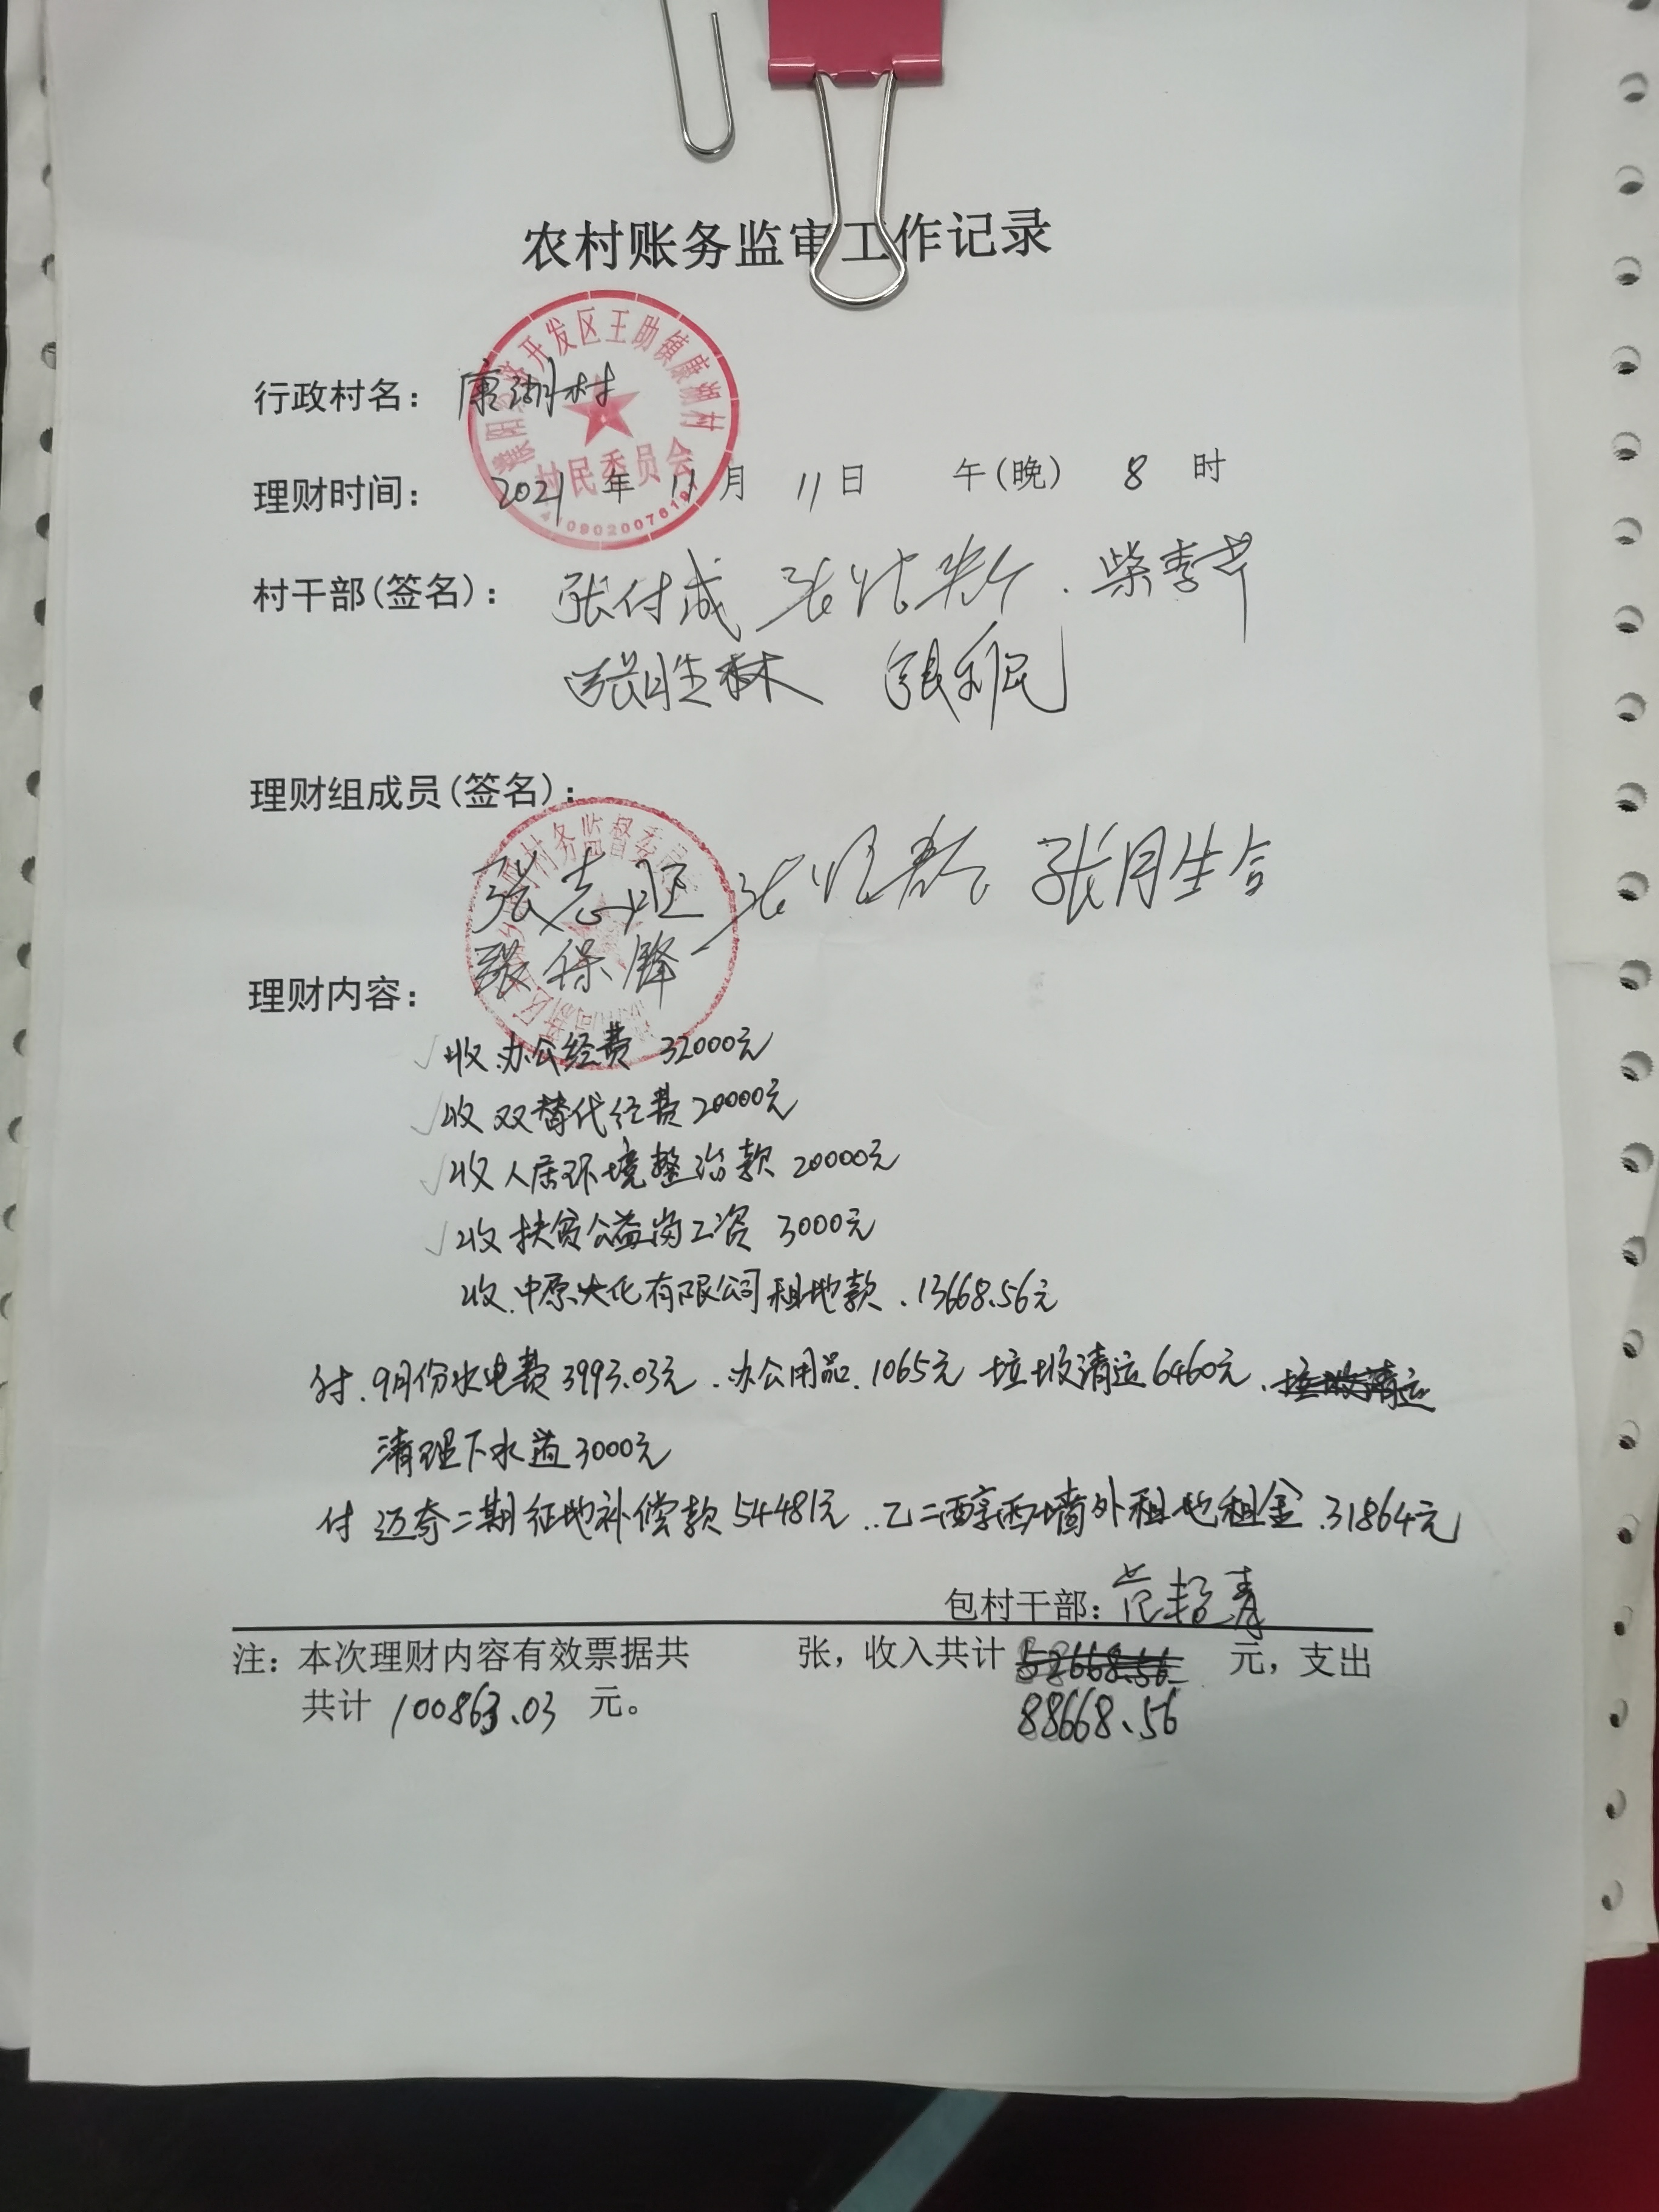 农村账务监审工作记录
行政村名： 康湖村
开发区王助镇康湖村
村民委员会
4109020076191
理财时间： 2021 年 11 月 11 日 午(晚) 8 时
村干部(签名)： 张付成 柴季芹
张胜林 张利民
理财组成员(签名)：
村务监督委员
张志旺 张月生合
张保锋
理财内容：
收.办公经费 32000元
收双替代经费20000元
收人居环境整治款 20000元
收扶贫公益岗工资 3000元
收.中原大化有限公司租地款.13668.56元
付.9月份水电费3993.03元.办公用品.1065元 垃圾清运6460元.垃圾清运
清理下水道3000元
付迈奇二期征地补偿款54481元..乙二醇西墙外租地租金.31864元
包村干部：
注：本次理财内容有效票据共 张，收入共计 58668.56 元，支出
共计 100863.03 元。 88668.56